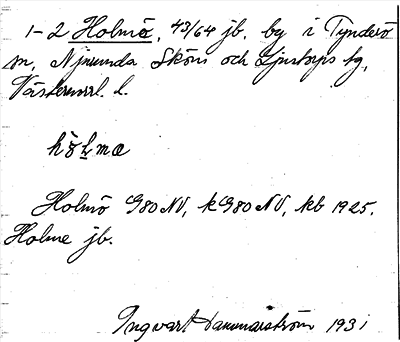 1-2 Holmö, 43/64 jb. by i Tynderö
sn, Njurunda Sköns och Ljustorps tg,
Västernorrl. l.
Holmö G80NV, kG80NV, kb 1925.
Holme jb.
Ingvar Hammarström 1931